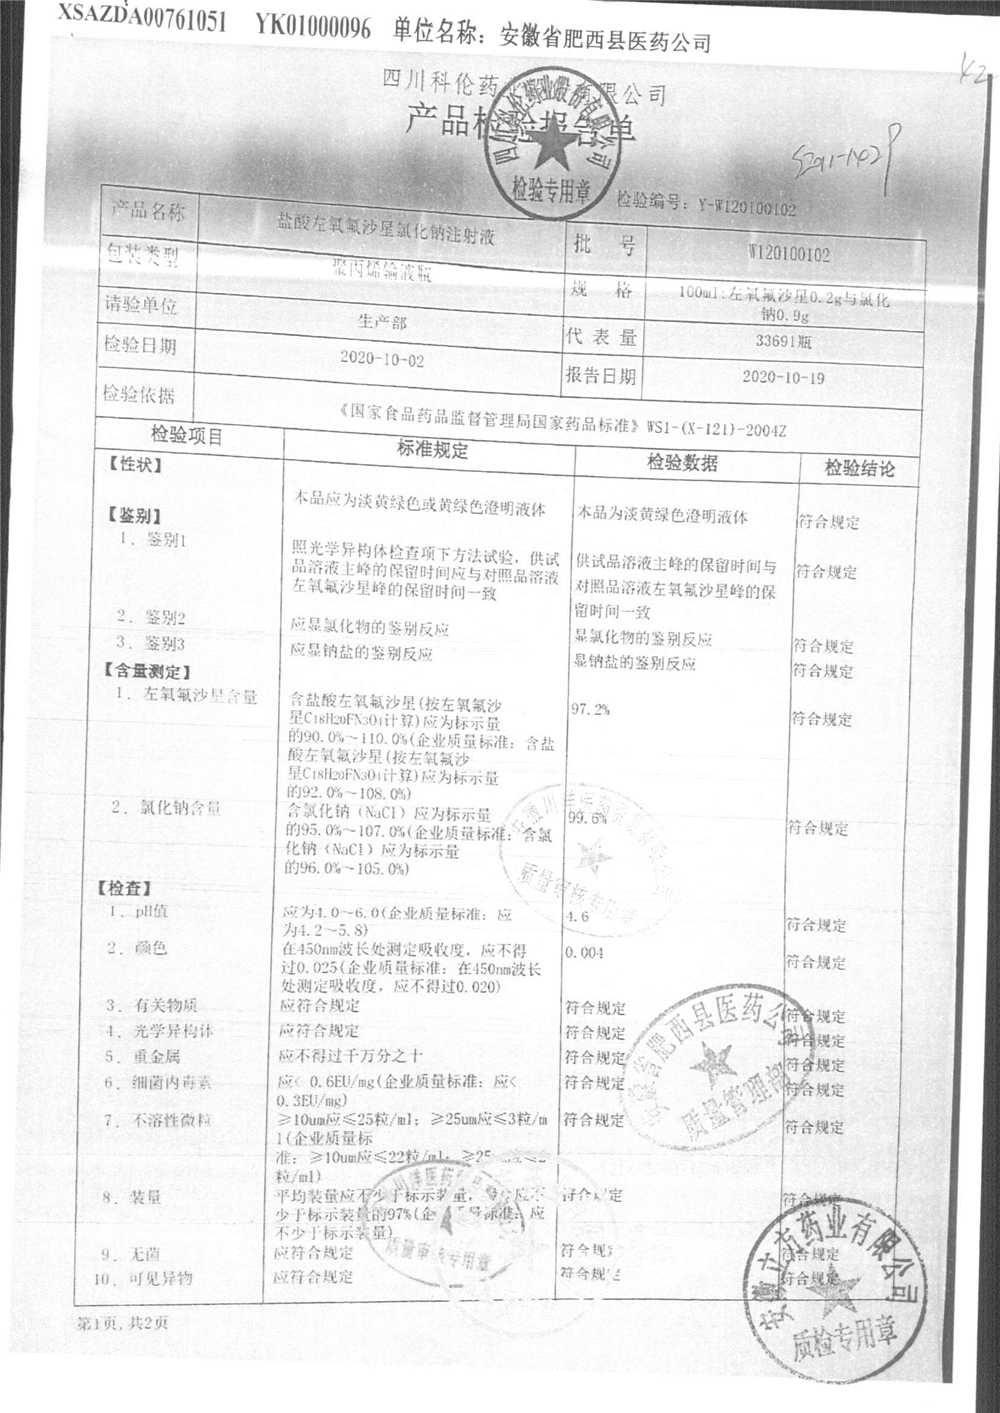 XSAZDA00761051 YK01000096 单位名称：安徽省肥西县医药公司
四川科伦药 限公司
产品检验报告单
四川科伦药业股份有限公司
检验专用章
检验编号：Y-W120100102
产品名称 盐酸左氧氟沙星氯化钠注射液 批 号 W120100102
包装类型 聚丙烯输液瓶 规 格 100ml:左氧氟沙星0.2g与氯化
钠0.9g
请验单位 生产部 代 表 量 33691瓶
检验日期 2020-10-02 报告日期 2020-10-19
检验依据 《国家食品药品监督管理局国家药品标准》WS1-(X-121)-2004Z
检验项目 标准规定 检验数据 检验结论
【性状】
本品应为淡黄绿色或黄绿色澄明液体 本品为淡黄绿色澄明液体 符合规定
【鉴别】
1．鉴别1 照光学异构体检查项下方法试验，供试 供试品溶液主峰的保留时间与 符合规定
品溶液主峰的保留时间应与对照品溶液 对照品溶液左氧氟沙星峰的保
左氧氟沙星峰的保留时间一致 留时间一致
2．鉴别2 应显氯化物的鉴别反应 显氯化物的鉴别反应 符合规定
3．鉴别3 应显钠盐的鉴别反应 显钠盐的鉴别反应 符合规定
【含量测定】
1．左氧氟沙星含量 含盐酸左氧氟沙星(按左氧氟沙 97.2% 符合规定
星C18H20FN3O4计算)应为标示量
的90.0%～110.0%(企业质量标准：含盐
酸左氧氟沙星(按左氧氟沙
星C18H20FN3O4计算)应为标示量
的92.0%～108.0%)
2．氯化钠含量 含氯化钠（NaCl）应为标示量 99.6% 符合规定
的95.0%～107.0%(企业质量标准：含氯
化钠（NaCl）应为标示量
的96.0%～105.0%)
【检查】
1．pH值 应为4.0～6.0(企业质量标准：应 4.6 符合规定
为4.2～5.8)
2．颜色 在450nm波长处测定吸收度，应不得 0.004 符合规定
过0.025(企业质量标准：在450nm波长
处测定吸收度，应不得过0.020)
3．有关物质 应符合规定 符合规定 符合规定
4．光学异构计 应符合规定 符合规定 符合规定
5．重金属 应不得过千万分之十 符合规定 符合规定
6．细菌内毒素 应< 0.6EU/mg(企业质量标准：应< 符合规定 符合规定
0.3EU/mg)
7．不溶性微粒 ≥10um应≤25粒/ml；≥25um应≤3粒/m 符合规定 符合规定
l(企业质量标
准：≥10um应≤22粒/ml；≥25
粒/ml)
8．装量 平均装量应不少于标示装量， 应不 符合规定 符合规定
少于标示装量的97%(企 标准：应
不少于标示装量)
9．无菌 应符合规定 符合规 符合规定
10．可见异物 应符合规定 符合规 符合规定
质量审核专用章
安徽省肥西县医药公司
质量管理部
质量审核专用章
安徽立方药业有限公司
质检专用章
第1页,共2页